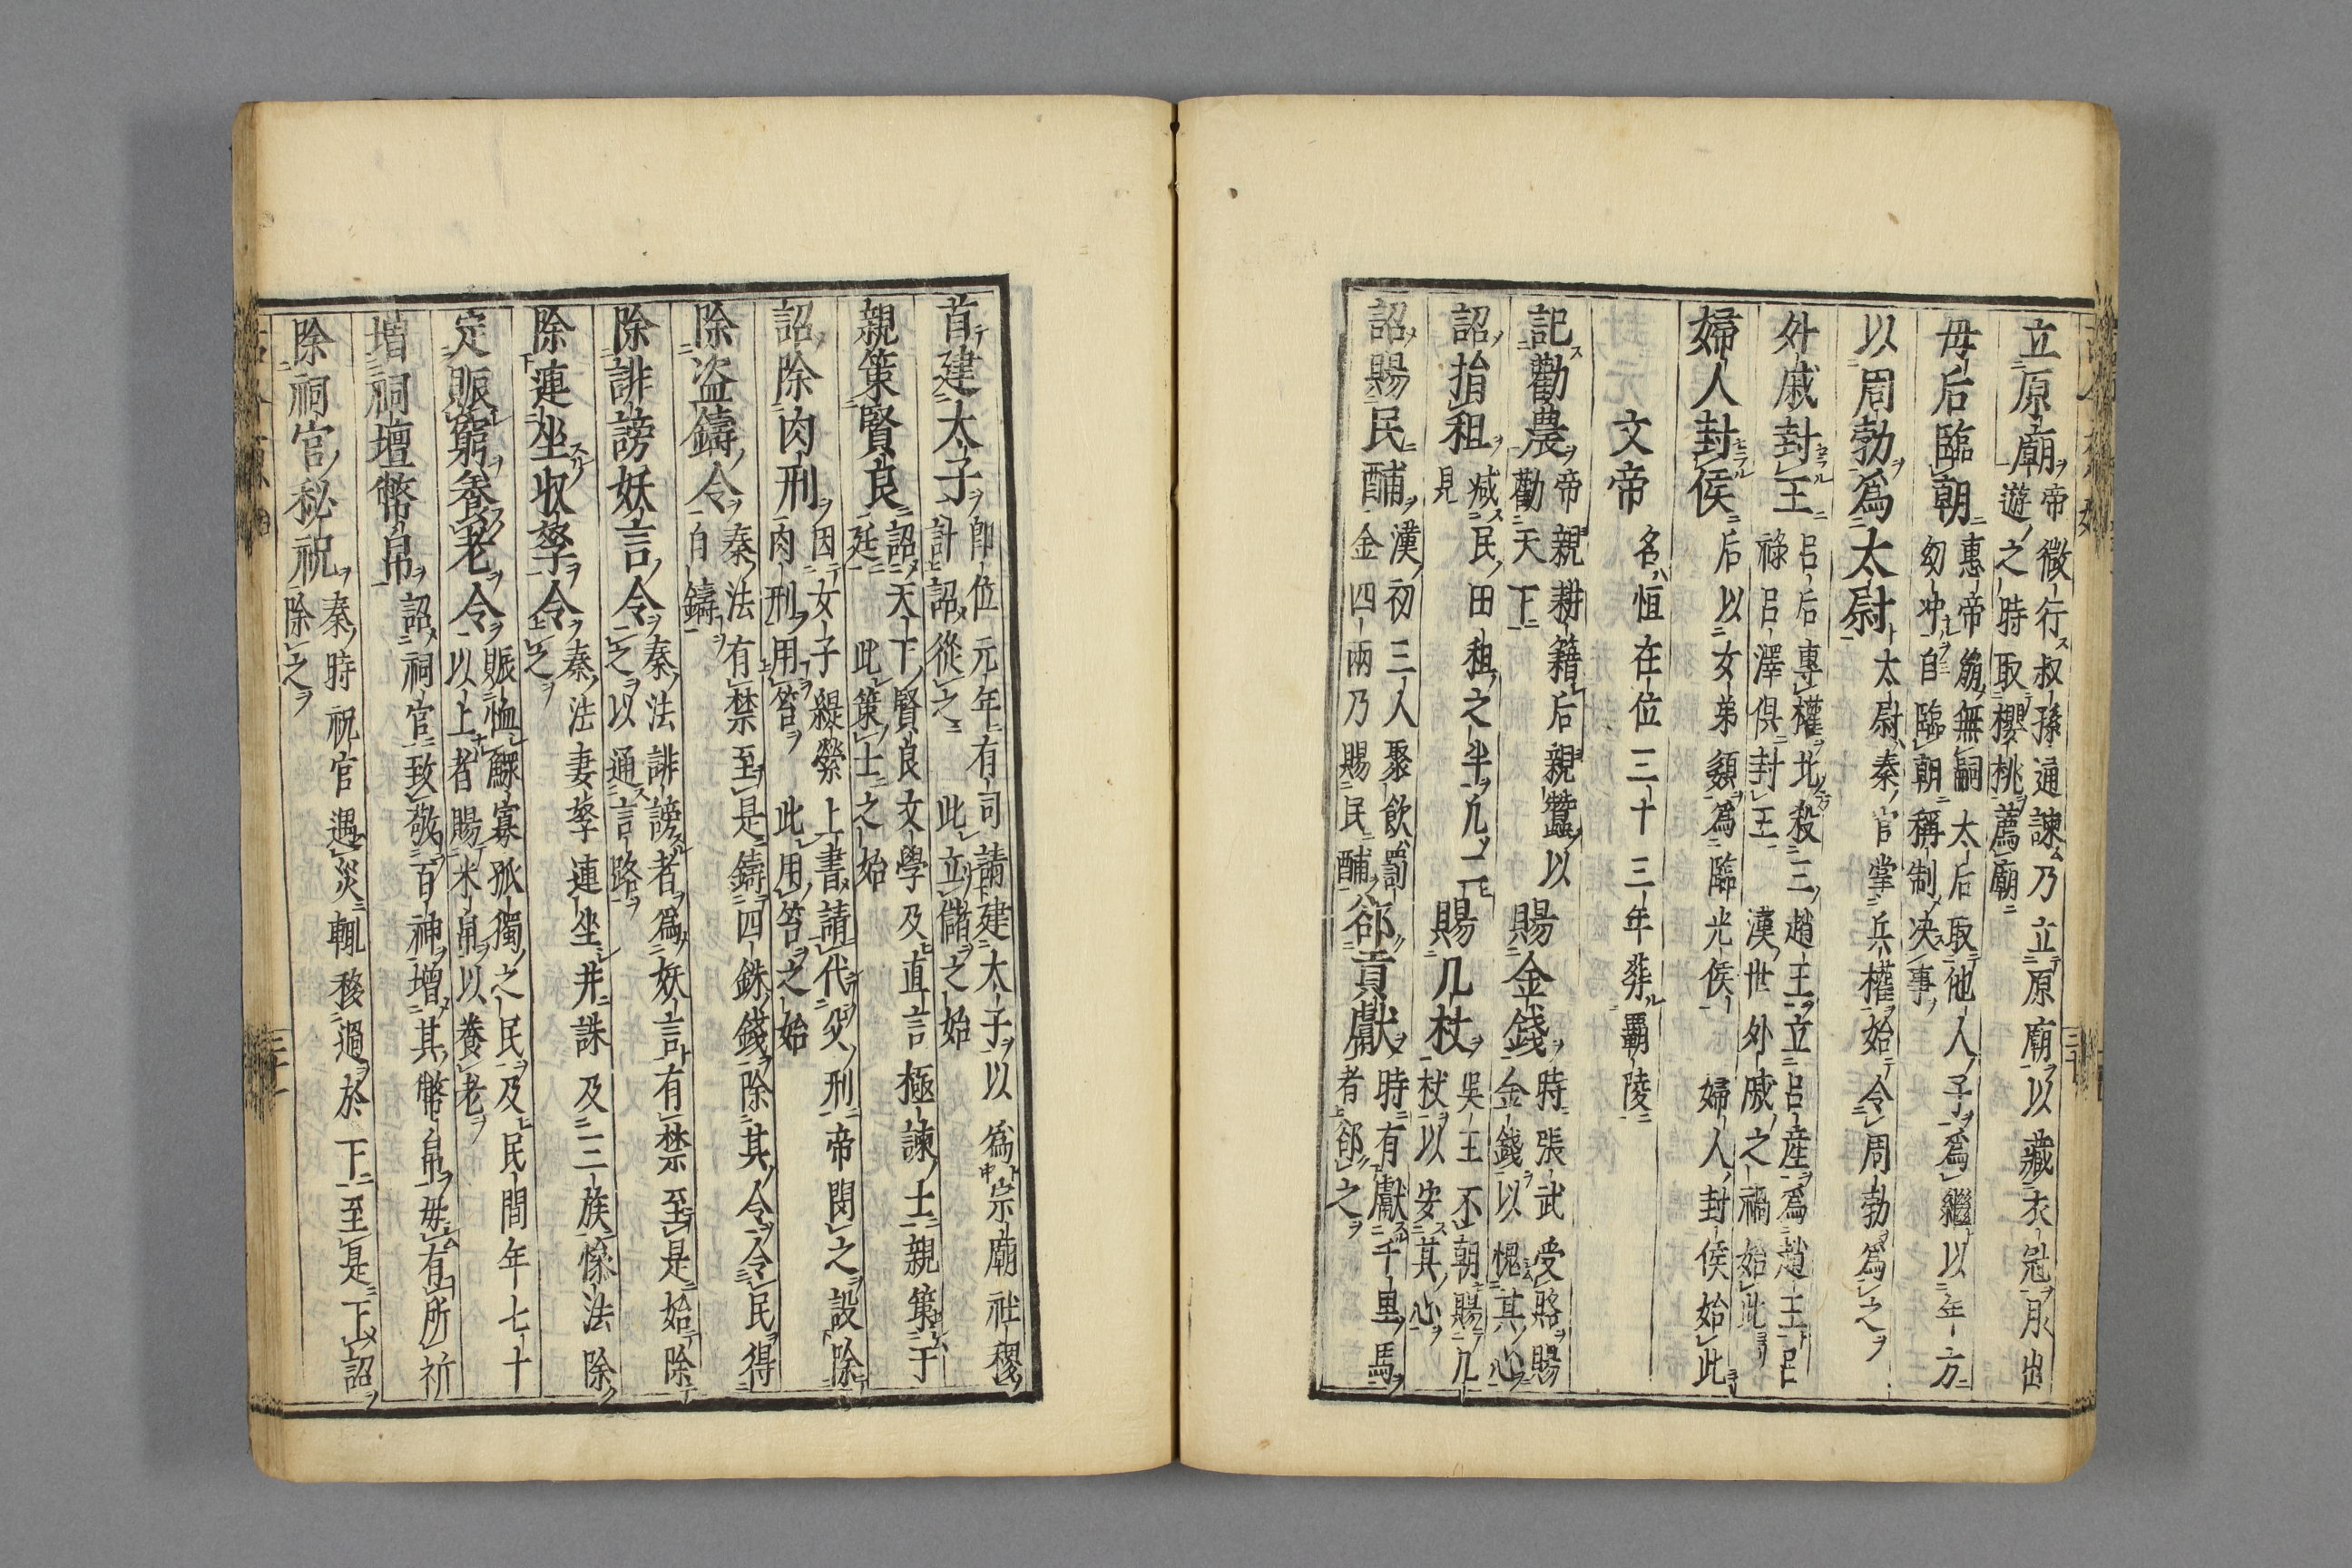 立原廟 帝微行叔孫通諫乃立原廟以藏衣冠月出
遊之時取櫻桃薦廟
母后臨朝 惠帝崩無嗣太后取他人子為繼以年方
幼冲自臨朝稱制决事
以周勃為太尉 太尉秦官掌兵權始令周勃為之
外戚封王 呂后專權北殺三趙王立呂産為趙王呂
祿呂澤俱封王漢世外戚之禍始此
婦人封侯 后以女弟嬃為臨光侯婦人封侯始此
文帝 名恒在位三十三年葬覇陵
記勸農 帝親耕籍后親蠶以
勸天下
賜金錢 時張武受賂賜
金錢以愧其心
詔損租 减民田租之半凡二
見
賜几杖 吳王不朝賜几
杖以安其心
詔賜民酺 漢初三人聚飲罰
金四兩乃賜民酺
郤貢獻 時有獻千里馬
者郤之
首建太子 即位元年有司請建太子以為宗廟社稷
計詔從之此立儲之始
親策賢良 詔天下賢良文學及直言極諫士親策于
廷此策士之始
詔除肉刑 因女子緹縈上書請代父刑帝閔之設除
肉刑用笞此用笞之始
除盗鑄令 秦法有禁至是鑄四銖錢除其令令民得
自鑄
除誹謗妖言令 秦法誹謗者為妖言有禁至是始除
之以通言路
除連坐收孥令 秦法妻孥連坐并誅及三族慘法除
之
定賑窮養老令 賑恤鰥寡孤獨之民及民間年七十
以上者賜米帛以養老
增祠壇幣帛 詔祠官致敬百神增其幣帛毋有所祈
除祠官秘祝 秦時祝官遇災輒移過於下至是下詔
除之